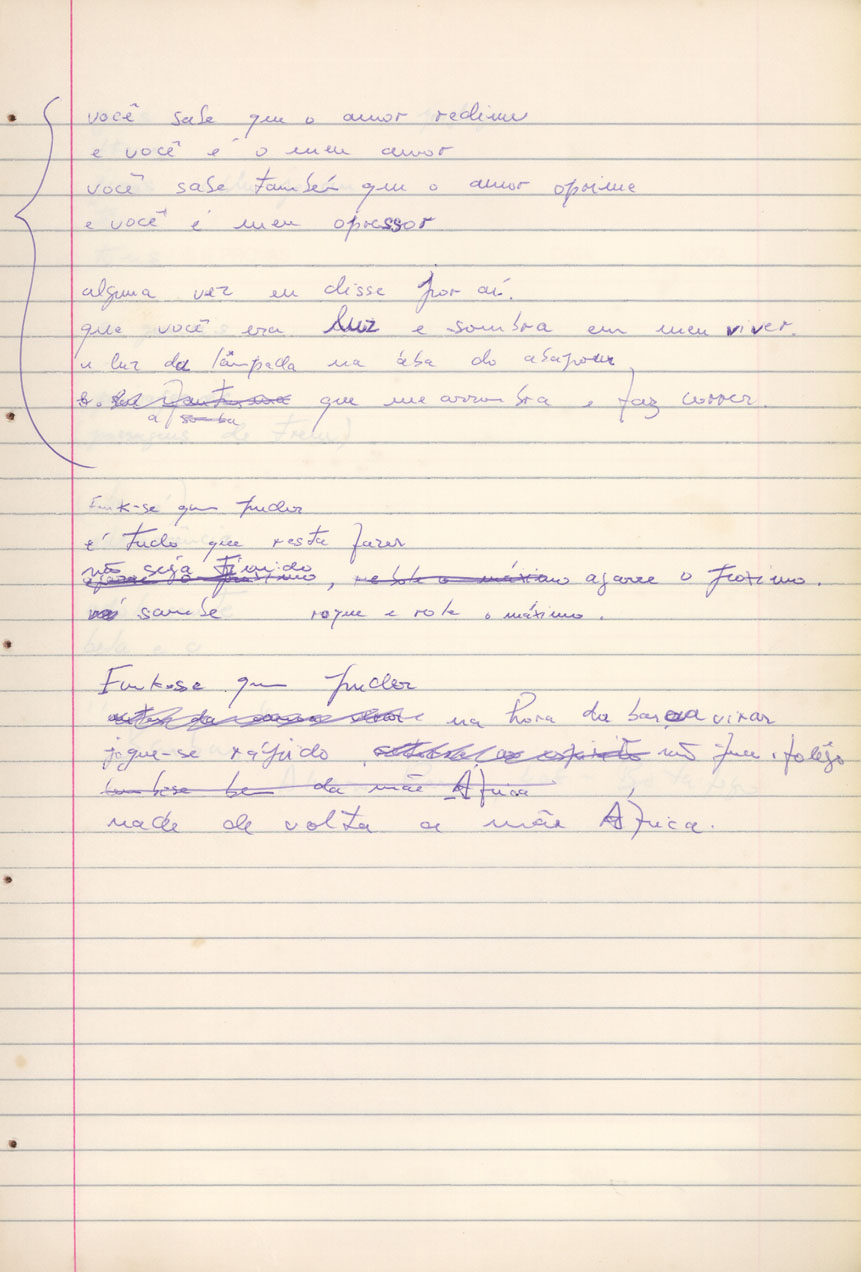 você sabe que o amor redime
e você é o meu amor
você sabe também que o amor oprime
e você é meu opressor
alguma vez eu disse por aí.
que você era luz e sombra em meu viver.
a luz da lâmpada na aba do abajour
que me arrombra e faz correr.
a sombra
Funk-se quem puder
é tudo que resta fazer
não seja tímido
, agarre o próximo.
sambe roque e role o máximo.
Funk-se quem puder
na hora da barca virar
jogue-se rápido não perca o fôlego
tum base bem da mãe África
nade de volta a mãe África.